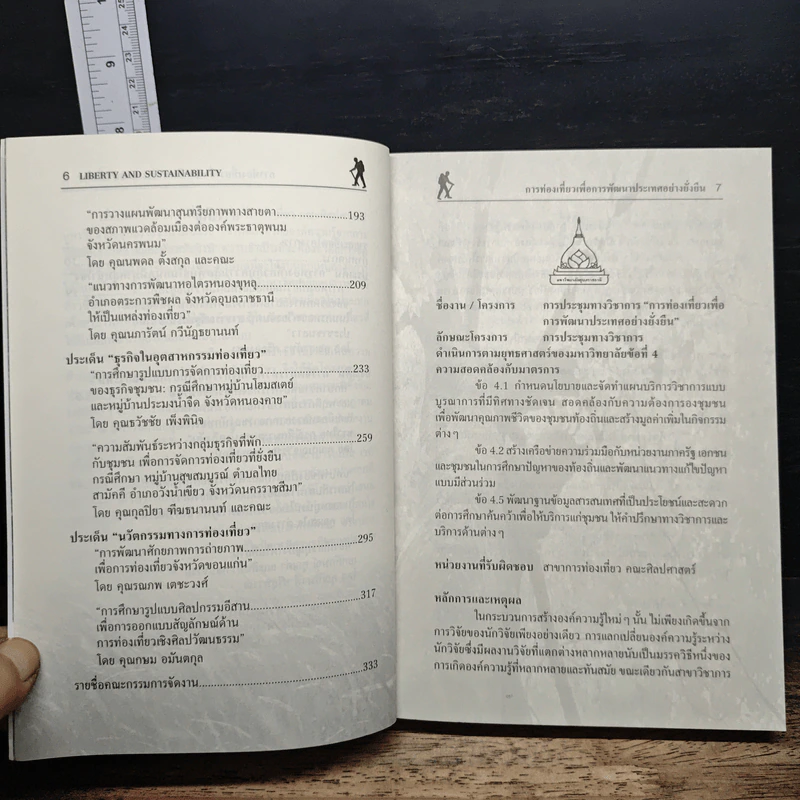 9
8
25
24
23
22
21
6 LIBERTY AND SUSTAINABILITY
"การวางแผนพัฒนาสุนทรียภาพทางสายตา.....................193
ของสภาพแวดล้อมเมืองต่อองค์พระธาตุพนม
จังหวัดนครพนม"
โดย คุณนพดล ตั้งสกุล และคณะ
"แนวทางการพัฒนาหอไตรหนองขุหลุ.....................209
อำเภอตระการพืชผล จังหวัดอุบลราชธานี
ให้เป็นแหล่งท่องเที่ยว"
โดย คุณนภารัตน์ กวีนัฏธยานนท์
ประเด็น "ธุรกิจในอุตสาหกรรมท่องเที่ยว"
"การศึกษารูปแบบการจัดการท่องเที่ยว.....................233
ของธุรกิจชุมชน: กรณีศึกษาหมู่บ้านโฮมสเตย์
และหมู่บ้านประมงน้ำจืด จังหวัดหนองคาย"
โดย คุณธวัชชัย เพ็งพินิจ
"ความสัมพันธ์ระหว่างกลุ่มธุรกิจที่พัก.....................259
กับชุมชน เพื่อการจัดการท่องเที่ยวที่ยั่งยืน
กรณีศึกษา หมู่บ้านสุขสมบูรณ์ ตำบลไทย
สามัคคี อำเภอวังน้ำเขียว จังหวัดนครราชสีมา"
โดย คุณกุลปิยา ฑีฆธนานนท์ และคณะ
ประเด็น "นวัตกรรมทางการท่องเที่ยว"
"การพัฒนาศักยภาพการถ่ายภาพ.....................295
เพื่อการท่องเที่ยวจังหวัดขอนแก่น"
โดย คุณรณภพ เตชะวงศ์
"การศึกษารูปแบบศิลปกรรมอีสาน.....................317
เพื่อการออกแบบสัญลักษณ์ด้าน
การท่องเที่ยวเชิงศิลปวัฒนธรรม"
โดย คุณกษม อมันตกุล
รายชื่อคณะกรรมการจัดงาน.....................333
การท่องเที่ยวเพื่อการพัฒนาประเทศอย่างยั่งยืน 7
มหาวิทยาลัยอุบลราชธานี
ชื่องาน / โครงการ การประชุมทางวิชาการ "การท่องเที่ยวเพื่อ
การพัฒนาประเทศอย่างยั่งยืน"
ลักษณะโครงการ การประชุมทางวิชาการ
ดำเนินการตามยุทธศาสตร์ของมหาวิทยาลัยข้อที่ 4
ความสอดคล้องกับมาตรการ
ข้อ 4.1 กำหนดนโยบายและจัดทำแผนบริการวิชาการแบบ
บูรณาการที่มีทิศทางชัดเจน สอดคล้องกับความต้องการองชุมชน
เพื่อพัฒนาคุณภาพชีวิตของชุมชนท้องถิ่นและสร้างมูลค่าเพิ่มในกิจกรรม
ต่าง ๆ
ข้อ 4.2 สร้างเครือข่ายความร่วมมือกับหน่วยงานภาครัฐ เอกชน
และชุมชนในการศึกษาปัญหาของท้องถิ่นและพัฒนาแนวทางแก้ไขปัญหา
แบบมีส่วนร่วม
ข้อ 4.5 พัฒนาฐานข้อมูลสารสนเทศที่เป็นประโยชน์และสะดวก
ต่อการศึกษาค้นคว้าเพื่อให้บริการแก่ชุมชน ให้คำปรึกษาทางวิชาการและ
บริการด้านต่าง ๆ
หน่วยงานที่รับผิดชอบ สาขาการท่องเที่ยว คณะศิลปศาสตร์
หลักการและเหตุผล
ในกระบวนการสร้างองค์ความรู้ใหม่ ๆ นั้น ไม่เพียงเกิดขึ้นจาก
การวิจัยของนักวิจัยเพียงอย่างเดียว การแลกเปลี่ยนองค์ความรู้ระหว่าง
นักวิจัยซึ่งมีผลงานวิจัยที่แตกต่างหลากหลายนับเป็นมรรควิธีหนึ่งของ
การเกิดองค์ความรู้ที่หลากหลายและทันสมัย ขณะเดียวกันสาขาวิชาการ